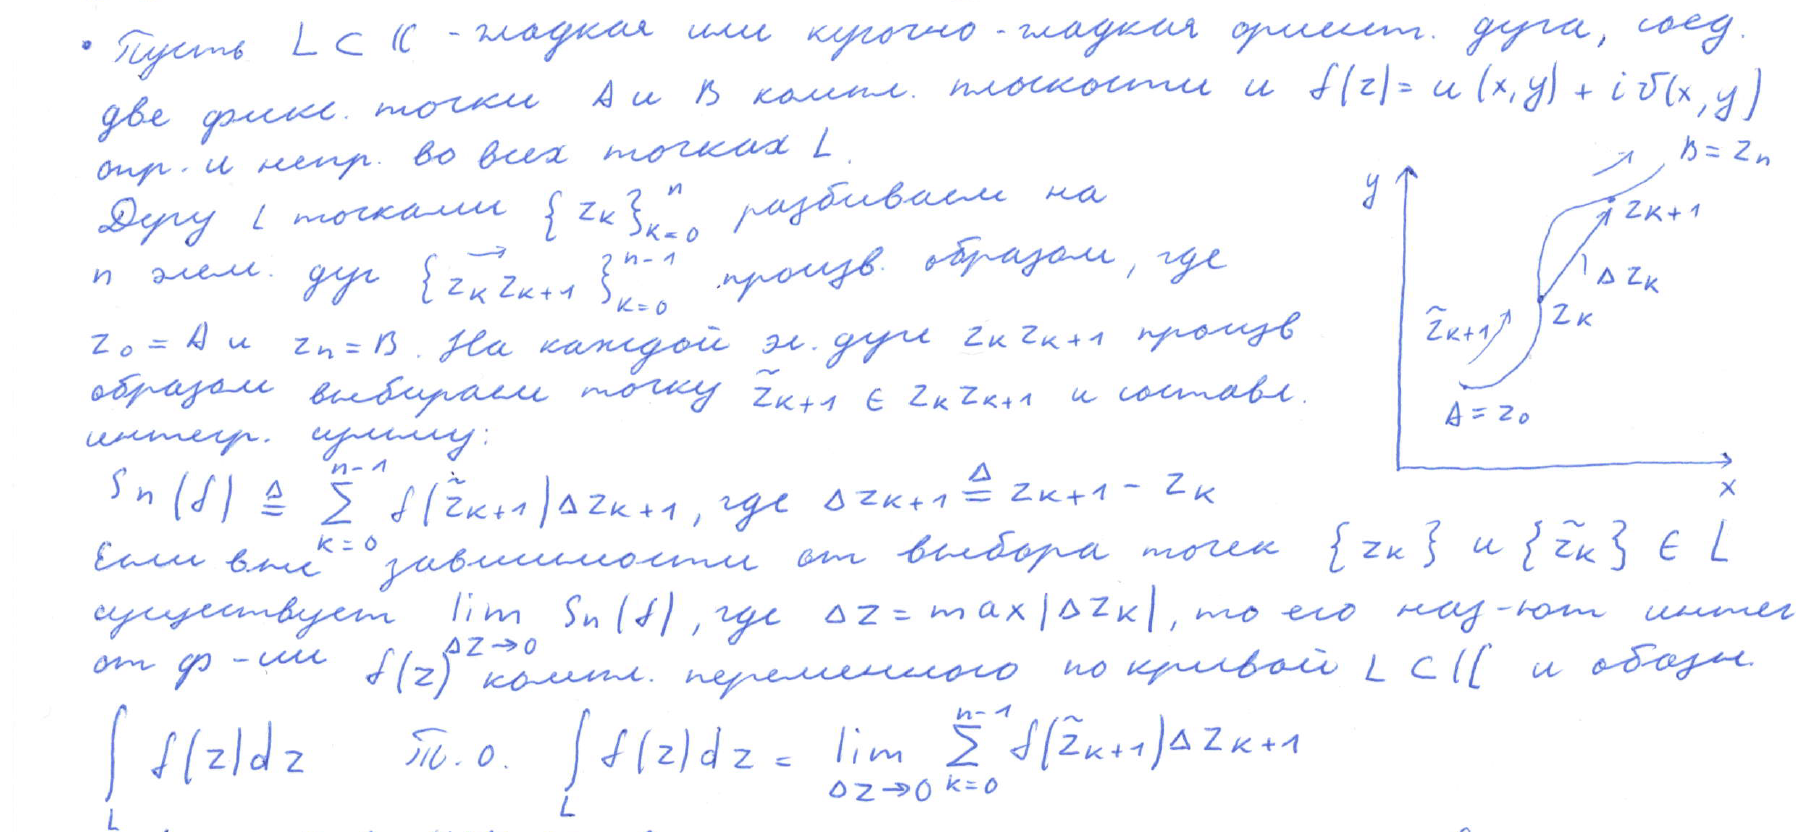 • Пусть L ⊂ ℂ - гладкая или кусочно - гладкая ориент. дуга, соед.
две фикс. точки A и B компл. плоскости и f(z) = u(x,y) + iv(x,y)
опр. и непр. во всех точках L.
Дугу L точками {z_k}_{k=0}^{n} разбиваем на
n элем. дуг {\overrightarrow{z_k z_{k+1}}}_{k=0}^{n-1} произв. образом, где
z_0 = A и z_n = B. На каждой эл. дуге z_k z_{k+1} произв
образом выбираем точку \tilde{z}_{k+1} ∈ z_k z_{k+1} и составл.
интегр. сумму:
S_n(f) ≜ \sum_{k=0}^{n-1} f(\tilde{z}_{k+1}) Δz_{k+1}, где Δz_{k+1} ≜ z_{k+1} - z_k
Если вне зависимости от выбора точек {z_k} и {\tilde{z}_k} ∈ L
существует \lim_{Δz→0} S_n(f), где Δz = max|Δz_k|, то его наз-ют интег
от ф-ии f(z) компл. переменного по кривой L ⊂ ℂ и обозн.
\int_L f(z)dz Т.о. \int_L f(z)dz = \lim_{Δz→0} \sum_{k=0}^{n-1} f(\tilde{z}_{k+1}) Δz_{k+1}
y
B = z_n
z_{k+1}
Δz_k
z_k
\tilde{z}_{k+1}
A = z_0
x